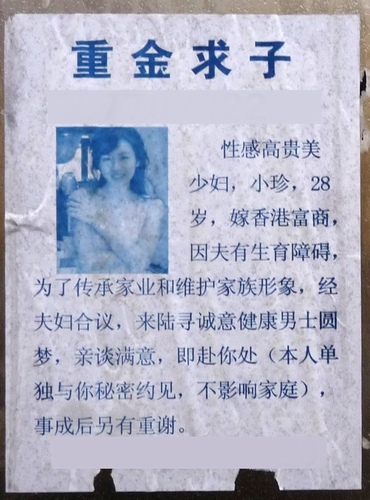 重金求子
性感高贵美
少妇，小珍，28
岁，嫁香港富商，
因夫有生育障碍，
为了传承家业和维护家族形象，经
夫妇合议，来陆寻诚意健康男士圆
梦，亲谈满意，即赴你处（本人单
独与你秘密约见，不影响家庭），
事成后另有重谢。